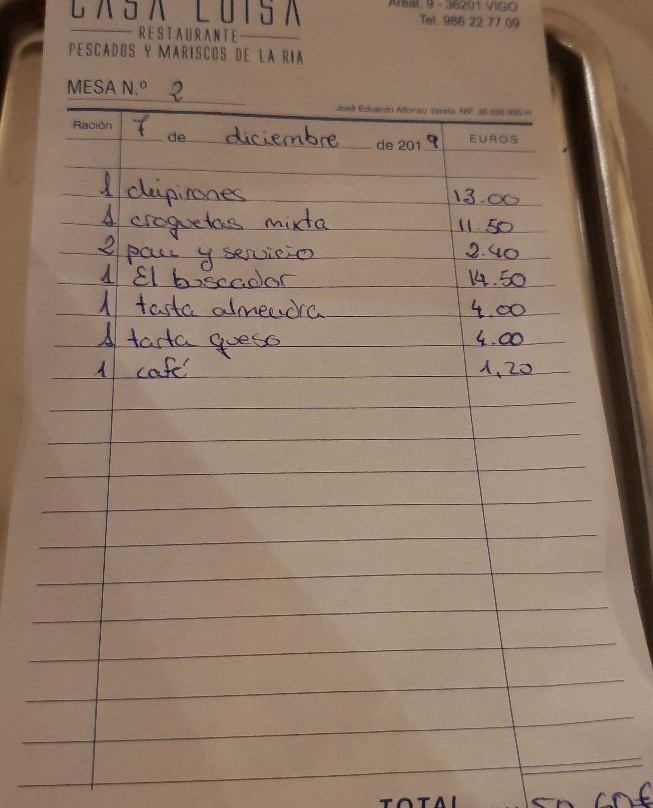 CASA LUISA
RESTAURANTE
PESCADOS Y MARISCOS DE LA RIA
Areal, 9 - 36201 VIGO
Tel. 986 22 77 09
MESA N.º 2
José Eduardo Alfonso Varela. NIF
Ración 7 de diciembre de 2019 EUROS
1 chipirones 13.00
1 croquetas mixta 11.50
2 pan y servicio 2.40
1 El buscador 14.50
1 tarta almendra 4.00
1 tarta queso 4.00
1 café 1,20
TOTAL 50.60€